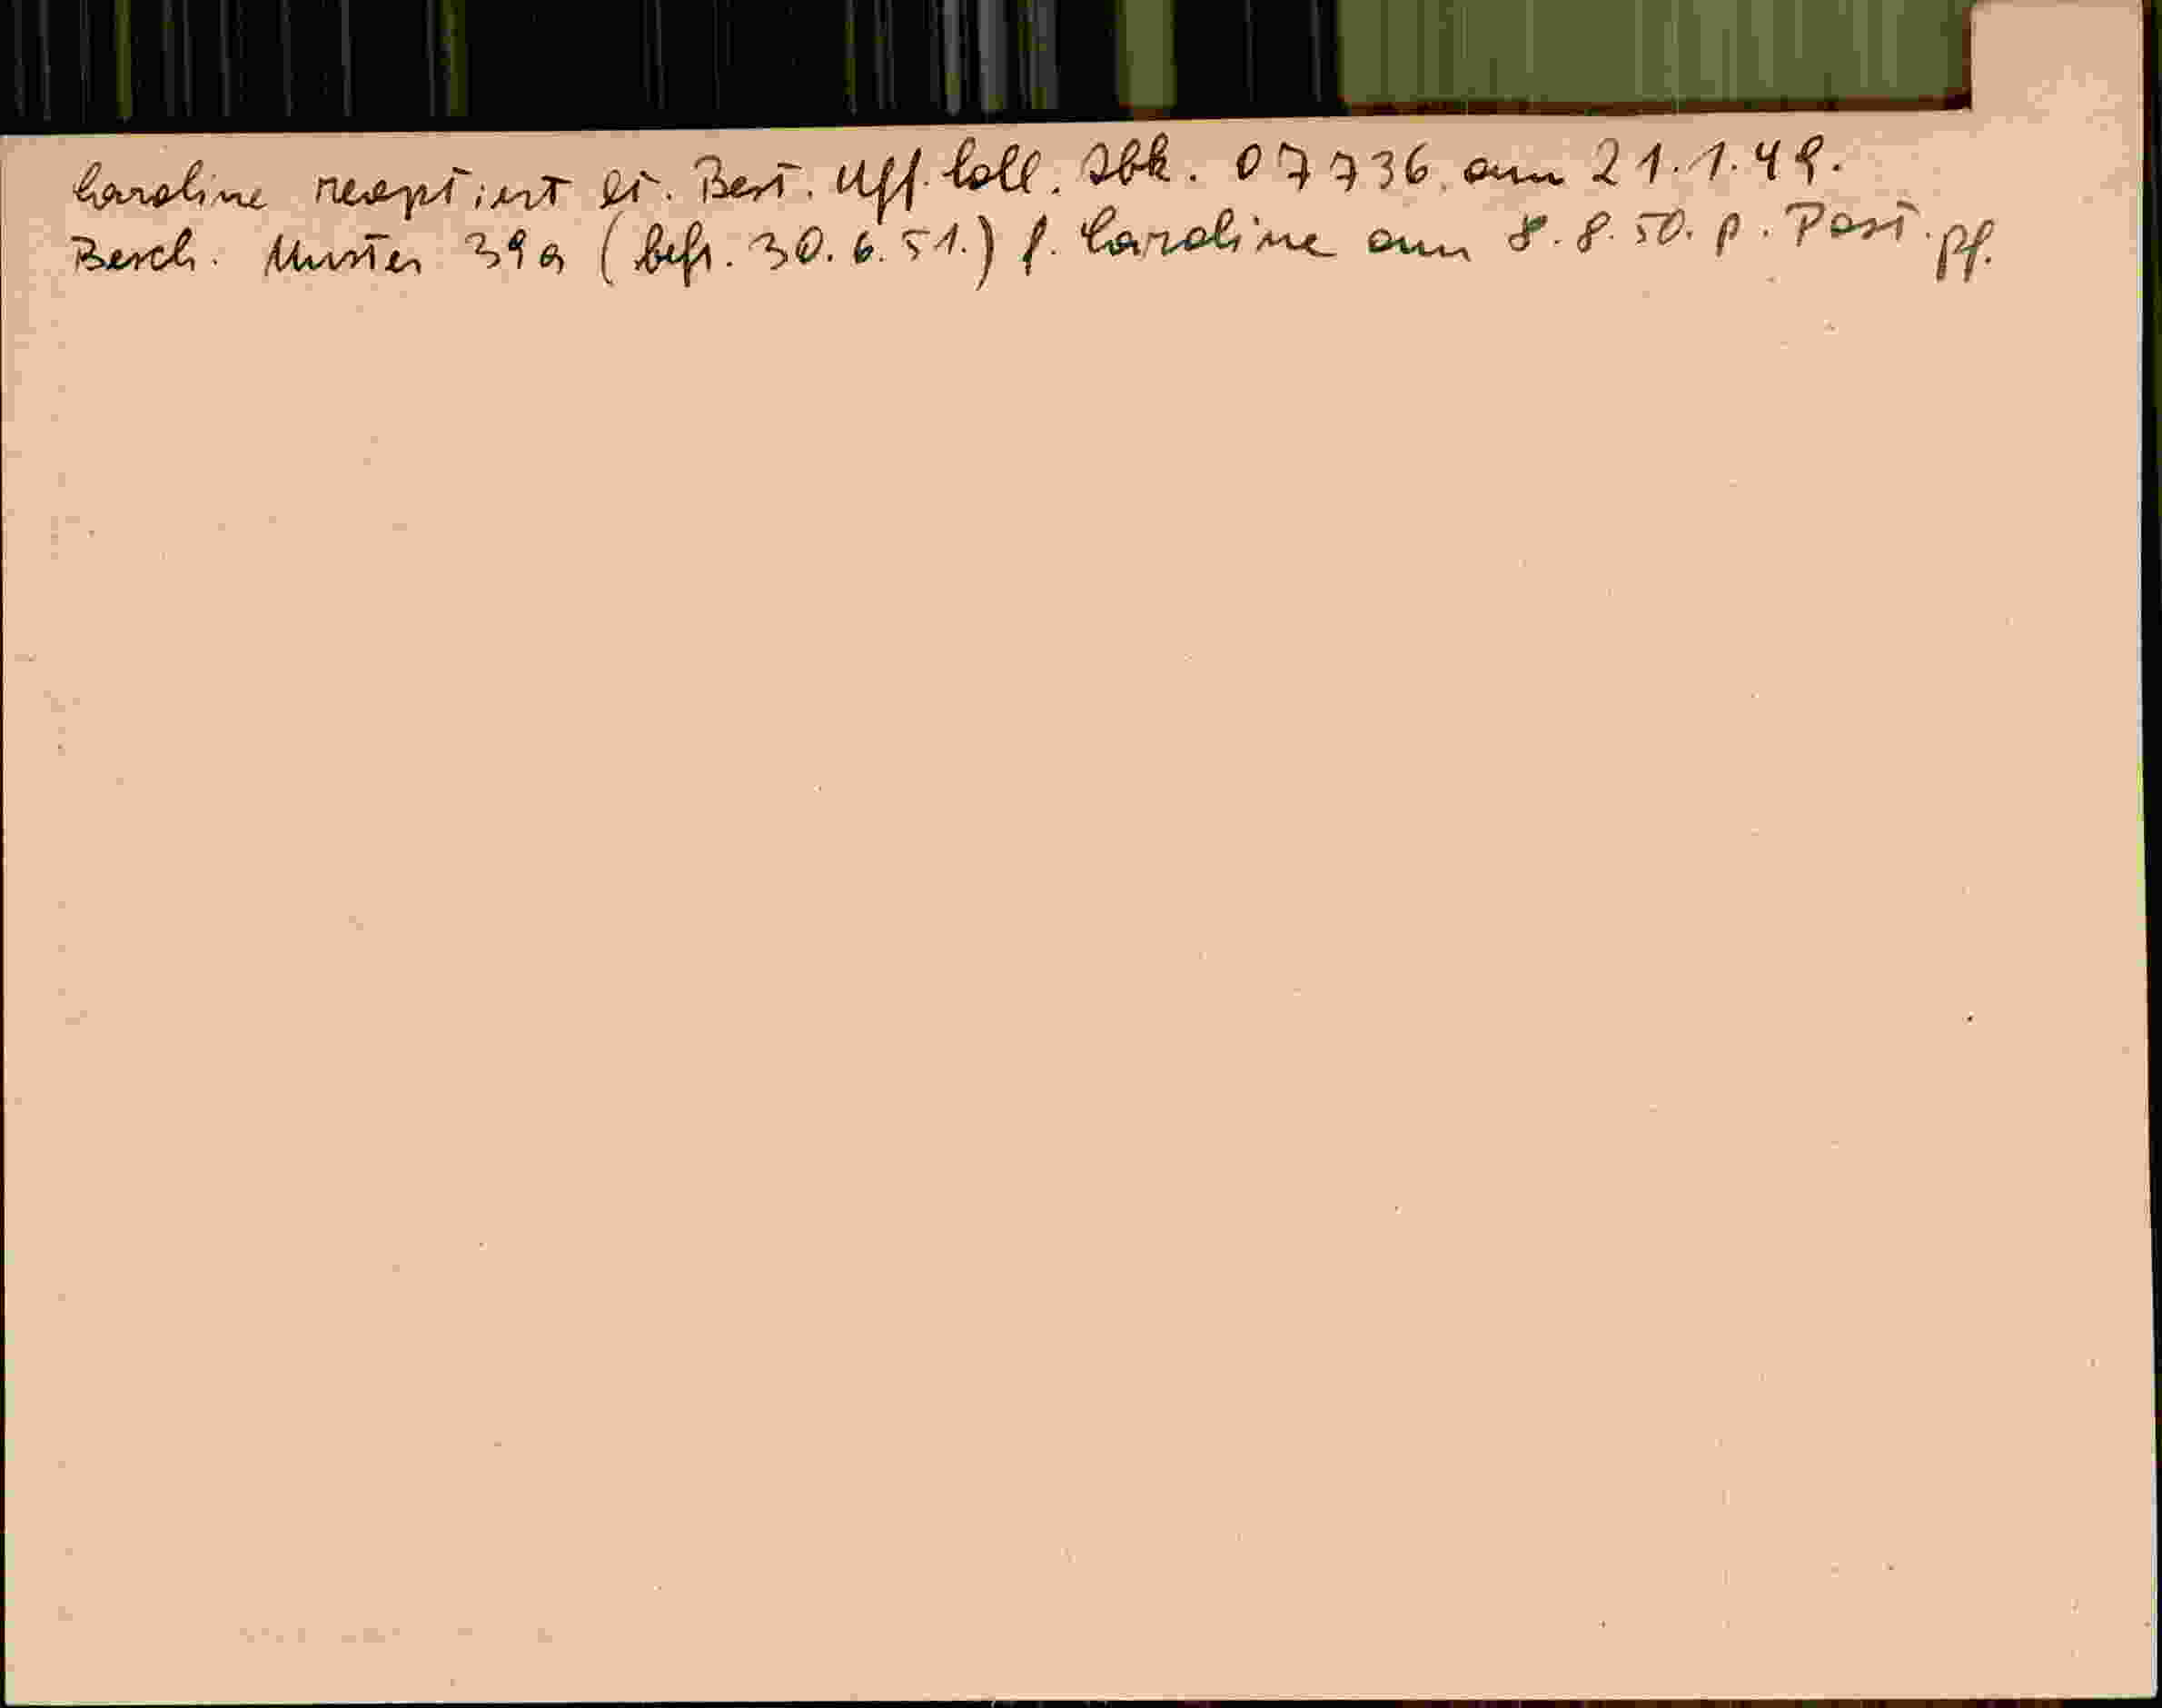 Caroline reoptiert lt. Best. Uff. Coll. Ibk. 07736, am 21.1.49.
Besch. Muster 39a (befr. 30.6.51.) f. Caroline am 8.8.50. p. Post. pf.